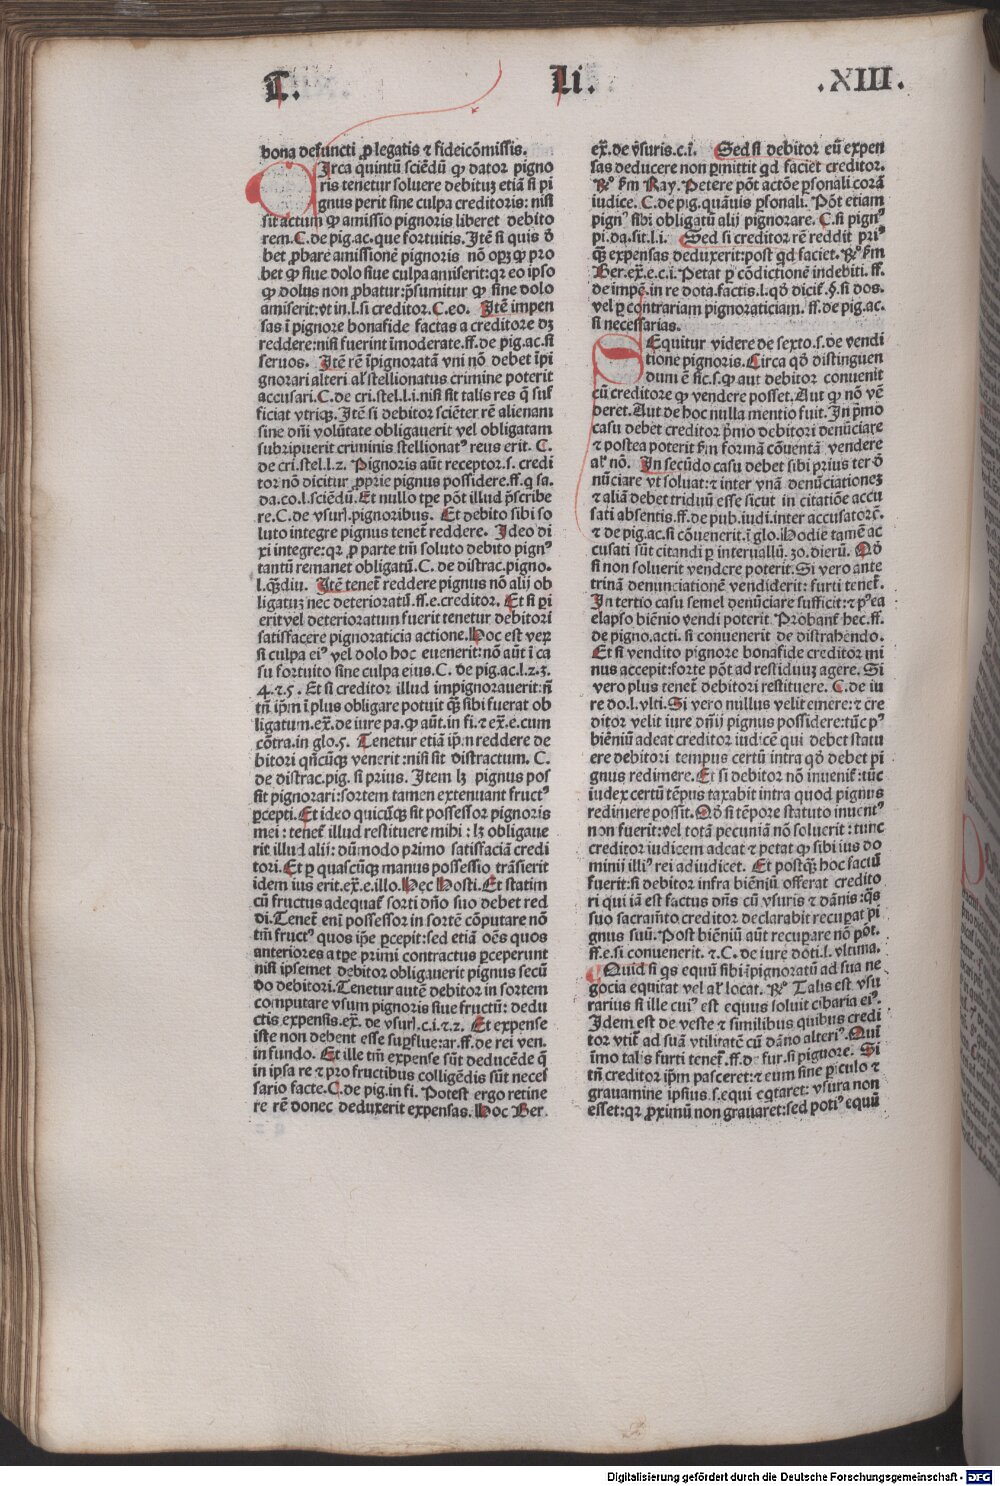 T. Li. .XIII.
bona defuncti ꝓ legatis ⁊ fideicōmissis.
CIrca quintū sciēdū ꝙ dator pigno
ris tenetur soluere debituꝫ etiā si pi
gnus perit sine culpa creditoris: nisi
sit actum ꝙ amissio pignoris liberet debito
rem. C. de pig. ac. que fortuitis. Itē si quis d̄
bet ꝓbare amissionē pignoris nō opꝫ ꝙ pro
bet ꝙ siue dolo siue culpa amiserit: qꝛ eo ipso
ꝙ dolus non ꝓbatur: p̄sumitur ꝙ sine dolo
amiserit: vt in. l. si creditor. C. eo. Itē impen
sas ī pignore bonafide factas a creditore dꝫ
reddere: nisi fuerint īmoderate. ff. de pig. ac. si
seruos. Itē rē īpignoratā vni nō debet īpi
gnorari alteri al̓ stellionatus crimine poterit
accusari. C. de cri. stel. l. i. nisi sit talis res q̄ suf
ficiat vtriqꝫ. Itē si debitor sciēter rē alienam
sine dn̄i volūtate obligauerit vel obligatam
subripuerit criminis stellionatꝰ reus erit. C.
de cri. stel. l. 2. Pignoris aūt receptor. s. credi
tor nō dicitur ꝓprie pignus possidere. ff. q̄ sa.
da. co. l. sciēdū. Et nullo tp̄e pōt illud p̄scribe
re. C. de vsur̄. pignoribus. Et debito sibi so
luto integre pignus tenet̄ reddere. Ideo di
xi integre: qꝛ ꝓ parte tm̄ soluto debito pignꝰ
tantū remanet obligatū. C. de distrac. pigno.
l. qꝫdiu. Itē tenet̄ reddere pignus nō alij ob
ligatuꝫ nec deterioratū. ff. e. creditor. Et si ꝑi
erit vel deterioratum fuerit tenetur debitori
satisfacere pignoraticia actione. Hoc est veꝝ
si culpa eiꝰ vel dolo hoc euenerit: nō aūt ī ca
su fortuito sine culpa eius. C. de pig. ac. l. 2. 3.
4. ⁊. 5. Et si creditor illud impignorauerit: n̄
tn̄ ip̄m ī plus obligare potuit qꝫ sibi fuerat ob
ligatum. ex̄. de iure pa. ꝙ aūt. in fi. ⁊ ex̄. e. cum
cōtra. in glo. 5. Tenetur etiā ip̄m reddere de
bitori qn̄cūqꝫ venerit: nisi sit distractum. C.
de distrac. pig. si prius. Item lꝫ pignus pos
sit pignorari: sortem tamen extenuant fructꝰ
ꝑcepti. Et ideo quicūqꝫ sit possessor pignoris
mei: tenet̄ illud restituere mihi: lꝫ obligaue
rit illud alij: dūmodo primo satisfaciā credi
tori. Et ꝑ quascūqꝫ manus possessio trāsierit
idem ius erit. ex̄. e. illo. Hec Hosti. Et statim
cū fructus adequat̄ sorti dn̄o suo debet red
di. Tenet̄ eni possessor in sortē cōputare nō
tm̄ fructꝰ quos ip̄e ꝑcepit: sed etiā oēs quos
anteriores a tp̄e primi contractus ꝑceperunt
nisi ipsemet debitor obligauerit pignus secū
do debitori. Tenetur autē debitor in sortem
computare vsum pignoris siue fructū: dedu
ctis expensis. ex̄. de vsur̄. c. i. ⁊. 2. Et expense
iste non debent esse suꝑflue: ar. ff. de rei ven.
in fundo. Et ille tm̄ expense sūt deducēde q̄
in ipsa re ⁊ pro fructibus colligēdis sūt neces
sario facte. C. de pig. in fi. Potest ergo retine
re rē donec deduxerit expensas. Hoc Ber.
ex̄. de vsuris. c. ī. Sed si debitor eū expen
sas deducere non ꝑmittit qd̓ faciet creditor.
Rꝰ ẜm Ray. Petere pōt actōe ꝑsonali corā
iudice. C. de pig. quāuis ꝑsonali. Pōt etiam
pignꝰ sibi obligatū alij pignorare. C. si pignꝰ
pi. da. sit. l. i. Sed si creditor rē reddit priꝰ
qꝫ expensas deduxerit: post qd̓ faciet. Rꝰ ẜm
Ber. ex̄. e. c. i. Petat ꝑ cōdictionē indebiti. ff.
de impē. in re dota. factis. l. qd̓ dicit̄. §. si dos.
vel ꝑ contrariam pignoraticiam. ff. de pig. ac.
si necessarias.
SEquitur videre de sexto. s. de vendi
tione pignoris. Circa qd̓ distinguen
dum ē sic. s. ꝙ aut debitor conuenit
cū creditore ꝙ vendere posset. Aut ꝙ nō vē
deret. Aut de hoc nulla mentio fuit. In p̄mo
casu debet creditor p̄mo debitori denūciare
⁊ postea poterit ẜm formā cōuentā vendere
al̓ nō. In secūdo casu debet sibi prius ter d̄
nūciare vt soluat: ⁊ inter vnā denūciationeꝫ
⁊ aliā debet triduū esse sicut in citatiōe accu
sati absentis. ff. de pub. iudi. inter accusatorē.
⁊ de pig. ac. si cōuenerit. ī glo. Hodie tamē ac
cusati sūt citandi ꝑ interuallū. 30. dierū. Qd̓
si non soluerit vendere poterit. Si vero ante
trinā denunciationē vendiderit: furti tenet̄.
In tertio casu semel denūciare sufficit: ⁊ p̄ea
elapso biēnio vendi poterit. Probant̄ hec. ff.
de pigno. acti. si conuenerit de distrahendo.
Et si vendito pignore bonafide creditor mi
nus accepit: forte pōt ad residuuꝫ agere. Si
vero plus tenet̄ debitori restituere. C. de iu
re do. l. vlti. Si vero nullus velit emere: ⁊ cre
ditor velit iure dn̄ij pignus possidere: tūc pꝰ
biēniū adeat creditor iudicē qui debet statu
ere debitori tempus certū intra qd̓ debet pi
gnus redimere. Et si debitor nō inuenit̄: tūc
iudex certū tēpus taxabit intra quod pignus
redimere possit. Qd̓ si tēpore statuto inuentꝰ
non fuerit: vel totā pecuniā nō soluerit: tunc
creditor iudicem adeat ⁊ petat ꝙ sibi ius do
minij illiꝰ rei adiudicet. Et postqꝫ hoc factū
fuerit: si debitor infra biēniū offerat credito
ri qui iā est factus dn̄s cū vsuris ⁊ dānis: qꝫs
suo sacram̄to creditor declarabit recuꝑat pi
gnus suū. Post biēniū aūt recuꝑare nō pōt.
ff. e. si conuenerit. ⁊. C. de iure dōti. l. vltima.
Quid si qs equū sibi īpignoratū ad sua ne
gocia equitat vel al̓ locat. Rꝰ Talis est vsu
rarius si ille cuiꝰ est equus soluit cibaria eiꝰ.
Idem est de veste ⁊ similibus quibus credi
tor vtit̄ ad suā vtilitatē cū dāno alteriꝰ. Quī
īmo talis furti tenet̄. ff. de fur. si pignore. Si
tn̄ creditor ip̄m pasceret: ⁊ eum sine ꝑiculo ⁊
grauamine ipsius. s. equi eqtaret: vsura non
esset: qꝛ ꝓximū non grauaret: sed potiꝰ equū
Digitalisierung gefördert durch die Deutsche Forschungsgemeinschaft - DFG